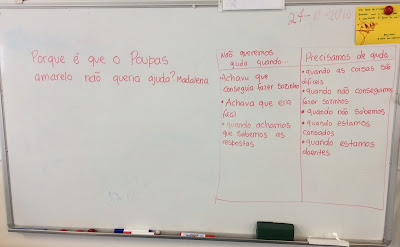 24-11-2016
Porque é que o Poupas
amarelo não queria ajuda? Madalena
Não queremos
ajuda quando...
• Achava que
conseguia fazer sozinho
• Achava que era
fácil
• quando achamos
que sabemos as
respostas
Precisamos de ajuda
• quando as coisas são
difíceis
• quando não conseguimos
fazer sozinhos
• quando não sabemos
• quando estamos
cansados
• quando estamos
doentes.